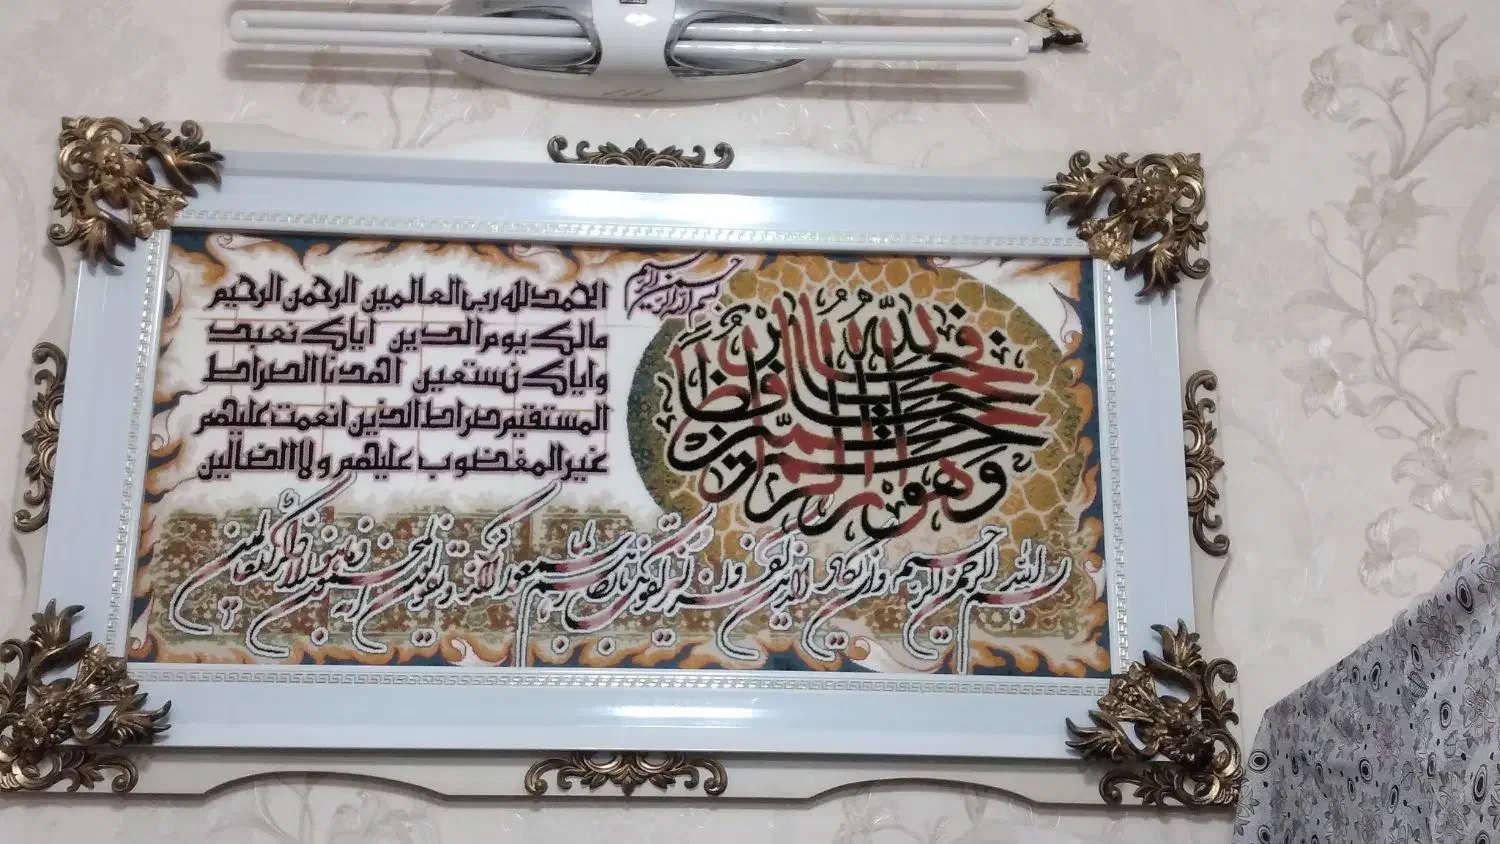 بسم الله الرحمن الرحیم
الحمد لله رب العالمین الرحمن الرحیم
مالک یوم الدین ایاک نعبد
و ایاک نستعین اهدنا الصراط
المستقیم صراط الذین انعمت علیهم
غیر المغضوب علیهم و لا الضآلین
فالله خیر حافظا
و هو ارحم الراحمین
بسم الله الرحمن الرحیم وان یکاد الذین کفروا لیزلقونک بابصارهم لما سمعوا الذکر و یقولون انه لمجنون و ما هو الا ذکر للعالمین